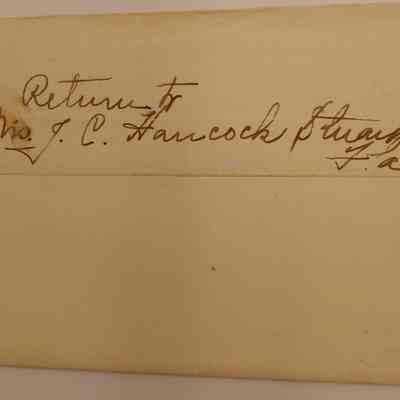 Return to
Mrs. J. C. Hancock Stuart